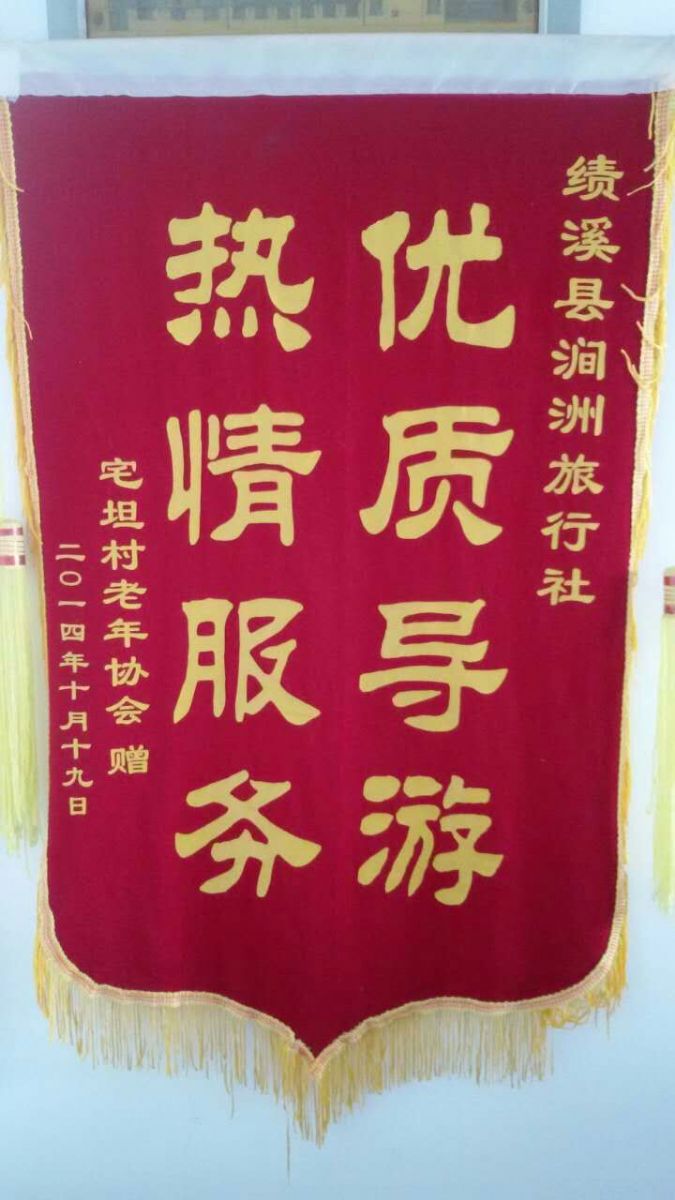 绩溪县涧洲旅行社
优质导游
热情服务
宅坦村老年协会 赠
二〇一四年十月十九日